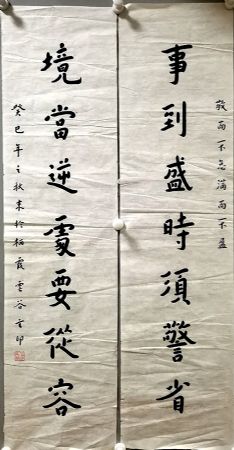 敬而不怠滿而不盈
事到盛時須警省
境當逆處要從容
癸巳年之秋末於栖霞雲谷印